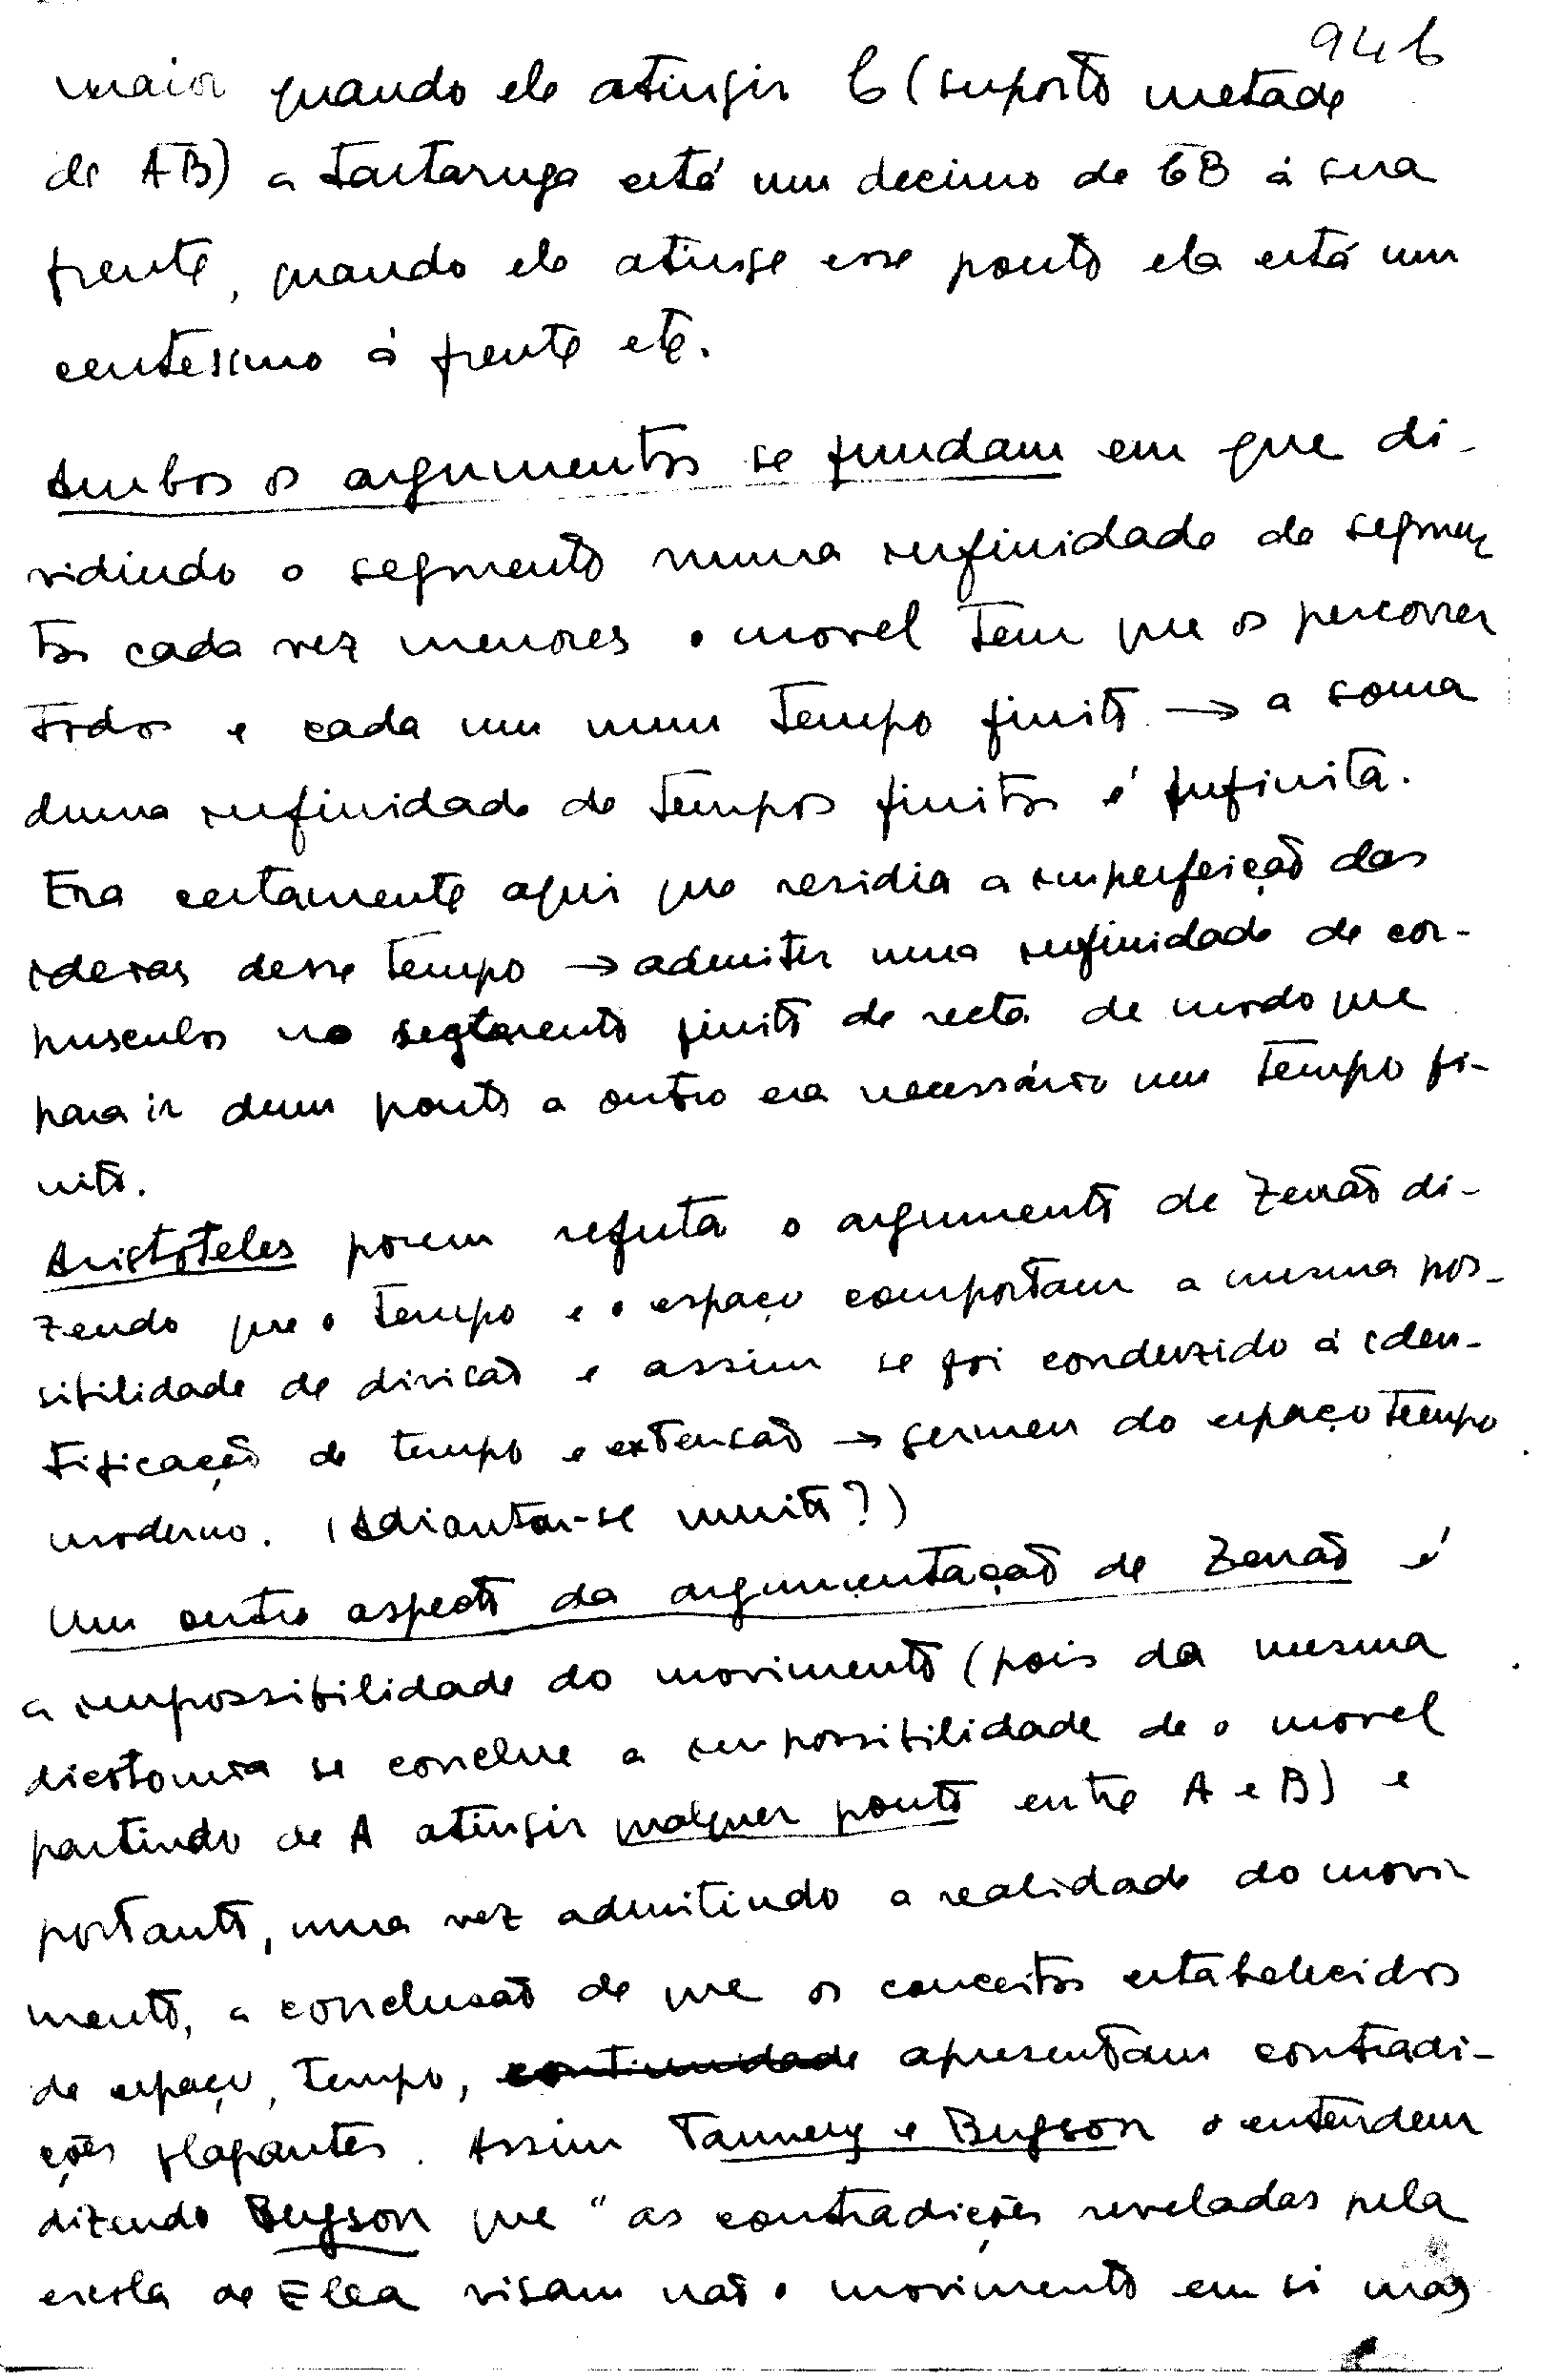 94b
maior quando ele atingir C (suposto metade
de AB) a tartaruga está um decimo de CB á sua
frente, quando ele atinge esse ponto ela está um
centesimo á frente etc.
Ambos os argumentos se fundam em que di-
vidindo o segmento numa infinidade de segmen
tos cada vez menores o movel tem que os percorrer
todos e cada um num tempo finito → a soma
duma infinidade de tempos finitos é infinita.
Era certamente aqui que residia a imperfeição das
ideias desse tempo → admitir uma infinidade de cor-
pusculos no segmento finito de recta de modo que
para ir dum ponto a outro era necessário um tempo fi-
nito.
Aristoteles porem refuta o argumento de Zenão di-
zendo que o tempo e o espaço comportam a mesma pos-
sibilidade de divisão e assim se foi conduzido á iden-
tificação de tempo e extensão → germen do espaço tempo
moderno. (Adiantar-se muito?)
Um outro aspecto da argumentação de Zenão é
a impossibilidade do movimento (pois da mesma
dicotomia se conclue a impossibilidade de o movel
partindo de A atingir qualquer ponto entre A e B) e
portanto, uma vez admitindo a realidade do movi
mento, a conclusão de que os conceitos estabelecidos
de espaço, tempo, continuidade apresentam contradi-
ções flagrantes. Assim Tannery e Bergson o entendem
dizendo Bergson que "as contradições reveladas pela
escola de Elea visam não o movimento em si mas